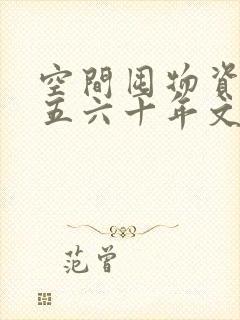 空間囤物資
五六十年文
范曾